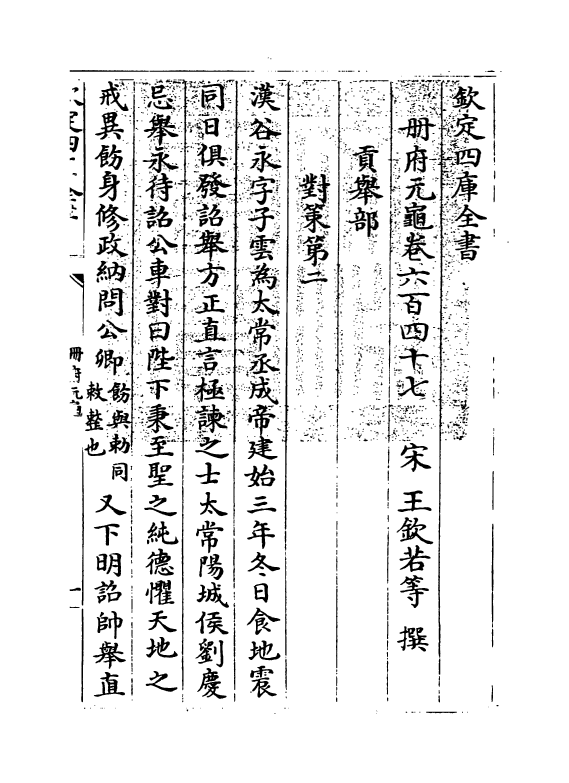 欽定四庫全書
冊府元龜卷六百四十七　宋　王欽若等　撰
貢舉部
對策第二
漢谷永字子雲為太常丞成帝建始三年冬日食地震
同日俱發詔舉方正直言極諫之士太常陽城侯劉慶
忌舉永待詔公車對曰陛下秉至聖之純德懼天地之
戒異飭身修政納問公卿飭與勅同敕整也又下明詔帥舉直